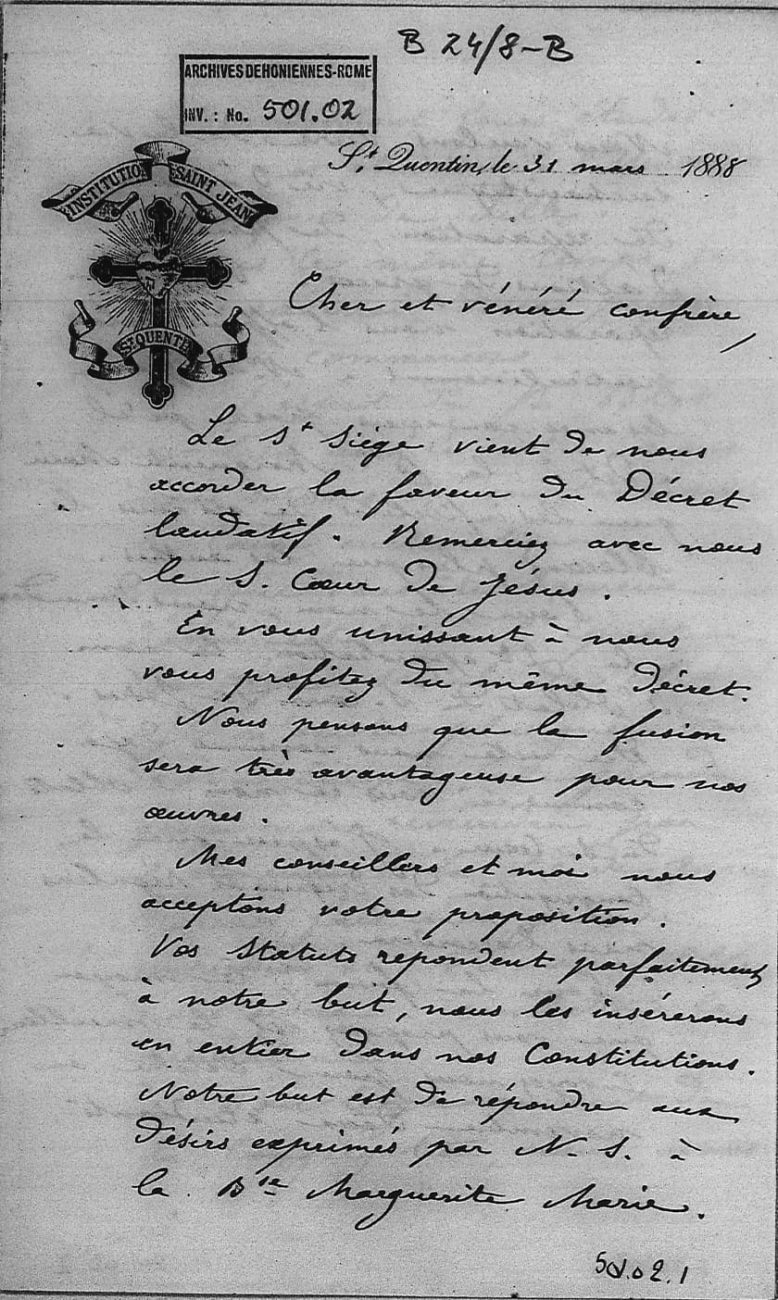 B 24/8-B
ARCHIVES DEHONIENNES-ROME
INV.: No. 501.02
St Quentin, le 31 mars 1888
INSTITUTION SAINT JEAN
ST QUENTIN
Cher et vénéré confrère,
Le St Siège vient de nous
accorder la faveur du Décret
laudatif. Remerciez avec nous
le S. Cœur de Jésus.
En vous unissant à nous
vous profitez du même décret.
Nous pensons que la fusion
sera très avantageuse pour nos
œuvres.
Mes conseillers et moi nous
acceptons votre proposition.
Vos Statuts repondent parfaitement
à notre but, nous les insérerons
en entier dans nos Constitutions.
Notre but est de répondre aux
désirs exprimés par N. S. à
la Bse Marguerite Marie.
501.02.1